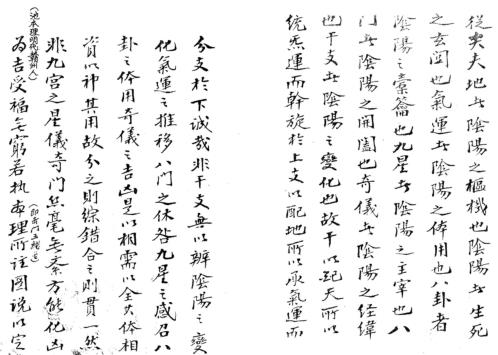 從矣夫地者陰陽之樞機也生死
之玄関也氣運者陰陽之体用也八卦者
陰陽之橐籥也九星者陰陽之主宰也八
門者陰陽之開闔也奇儀者陰陽之経緯
也干支者陰陽之變化也故干以紀天所以
統炁運而斡旋於上支以配地所以承氣運而
分支於下誠哉非干支無以辨陰陽之變
化氣運之推移八門之休咎九星之感召八
卦之体用奇儀之吉凶是以相需以全其体相
資以神其用故分之則綜錯合之則貫一然
非九宮之星儀奇門丝毫無紊方能化凶
為吉受福無窮若执本理所註圖說以定
(池本理明代赣州人)
(即奇門五總龜)